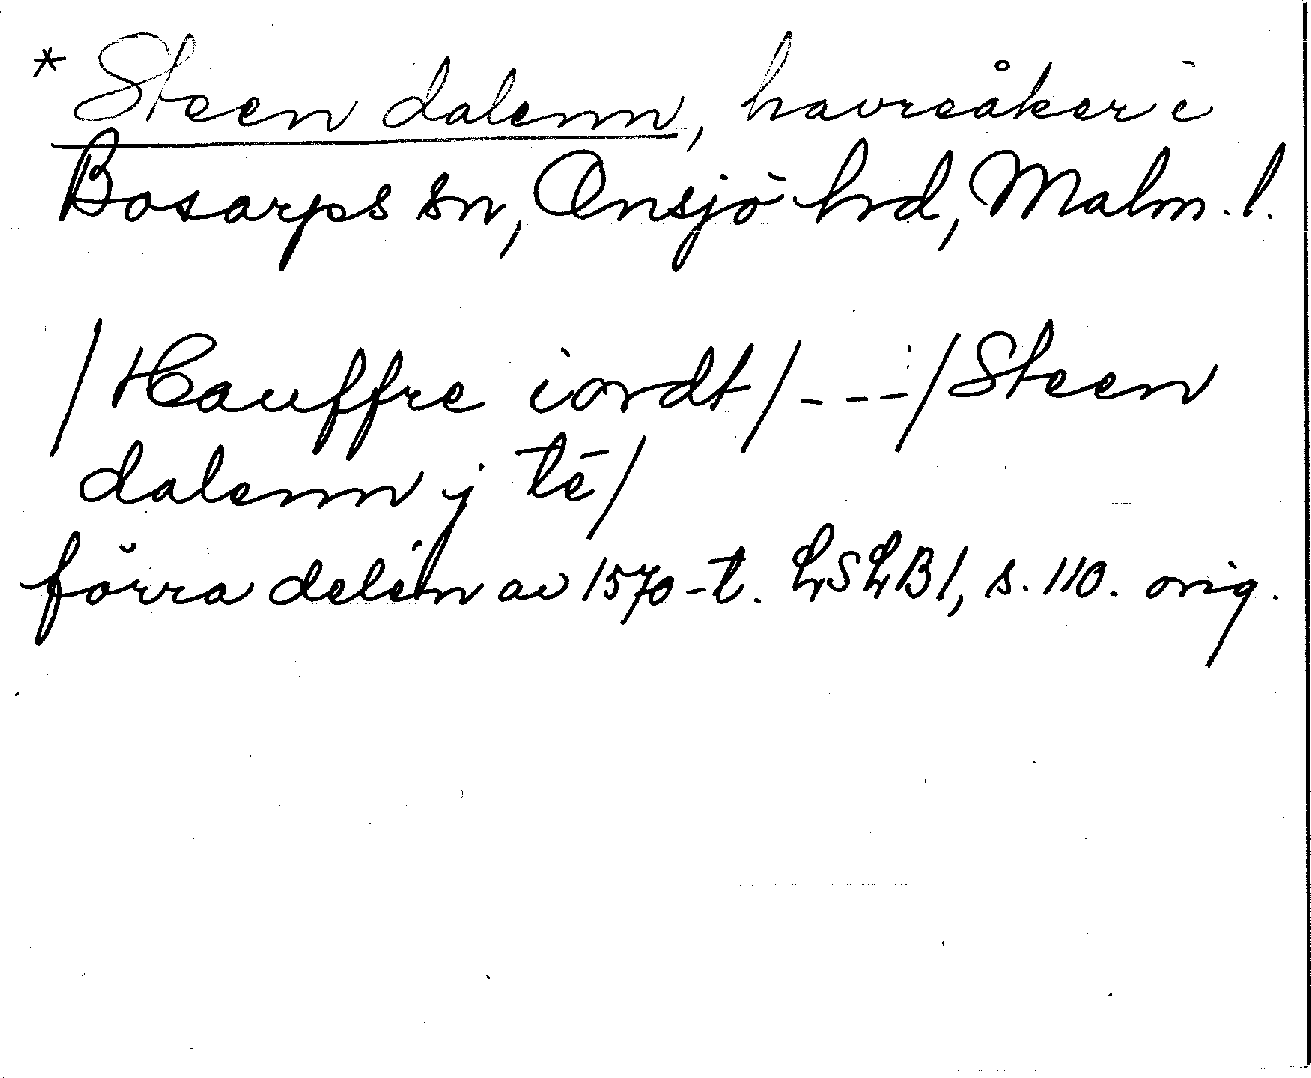 * Steen dalenn, havreåker i
Bosarps sn, Onsjö hd, Malm. l.
/Hauffre iordt/---/Steen
dalenn j tē/
förra delen av 1570-t. LSLB1, s. 110. orig.